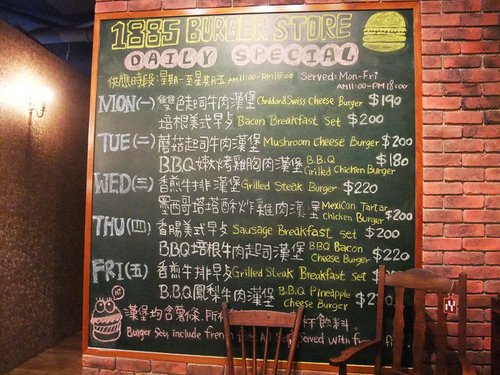 1885 BURGER STORE
DAILY SPECIAL
供應時段:星期一至星期五 AM11:00-PM18:00 Served: Mon-Fri AM11:00-PM18:00
MON(一) 雙色起司牛肉漢堡 Cheddar&Swiss Cheese Burger $190
培根美式早午 Bacon Breakfast Set $200
TUE(二) 蘑菇起司牛肉漢堡 Mushroom Cheese Burger $200
B.B.Q嫩烤雞胸肉漢堡 B.B.Q Grilled Chicken Burger $180
WED(三) 香煎牛排漢堡 Grilled Steak Burger $220
墨西哥塔塔酥炸雞肉漢堡 Mexican Tartar Chicken Burger $200
THU(四) 香腸美式早午 Sausage Breakfast Set $200
B.B.Q培根牛肉起司漢堡 B.B.Q Bacon Cheese Burger $220
FRI(五) 香煎牛排早午 Grilled Steak Breakfast Set
B.B.Q鳳梨牛肉漢堡 B.B.Q Pineapple Cheese Burger
漢堡均含薯條 杯飲料
Burger Sets include Served with